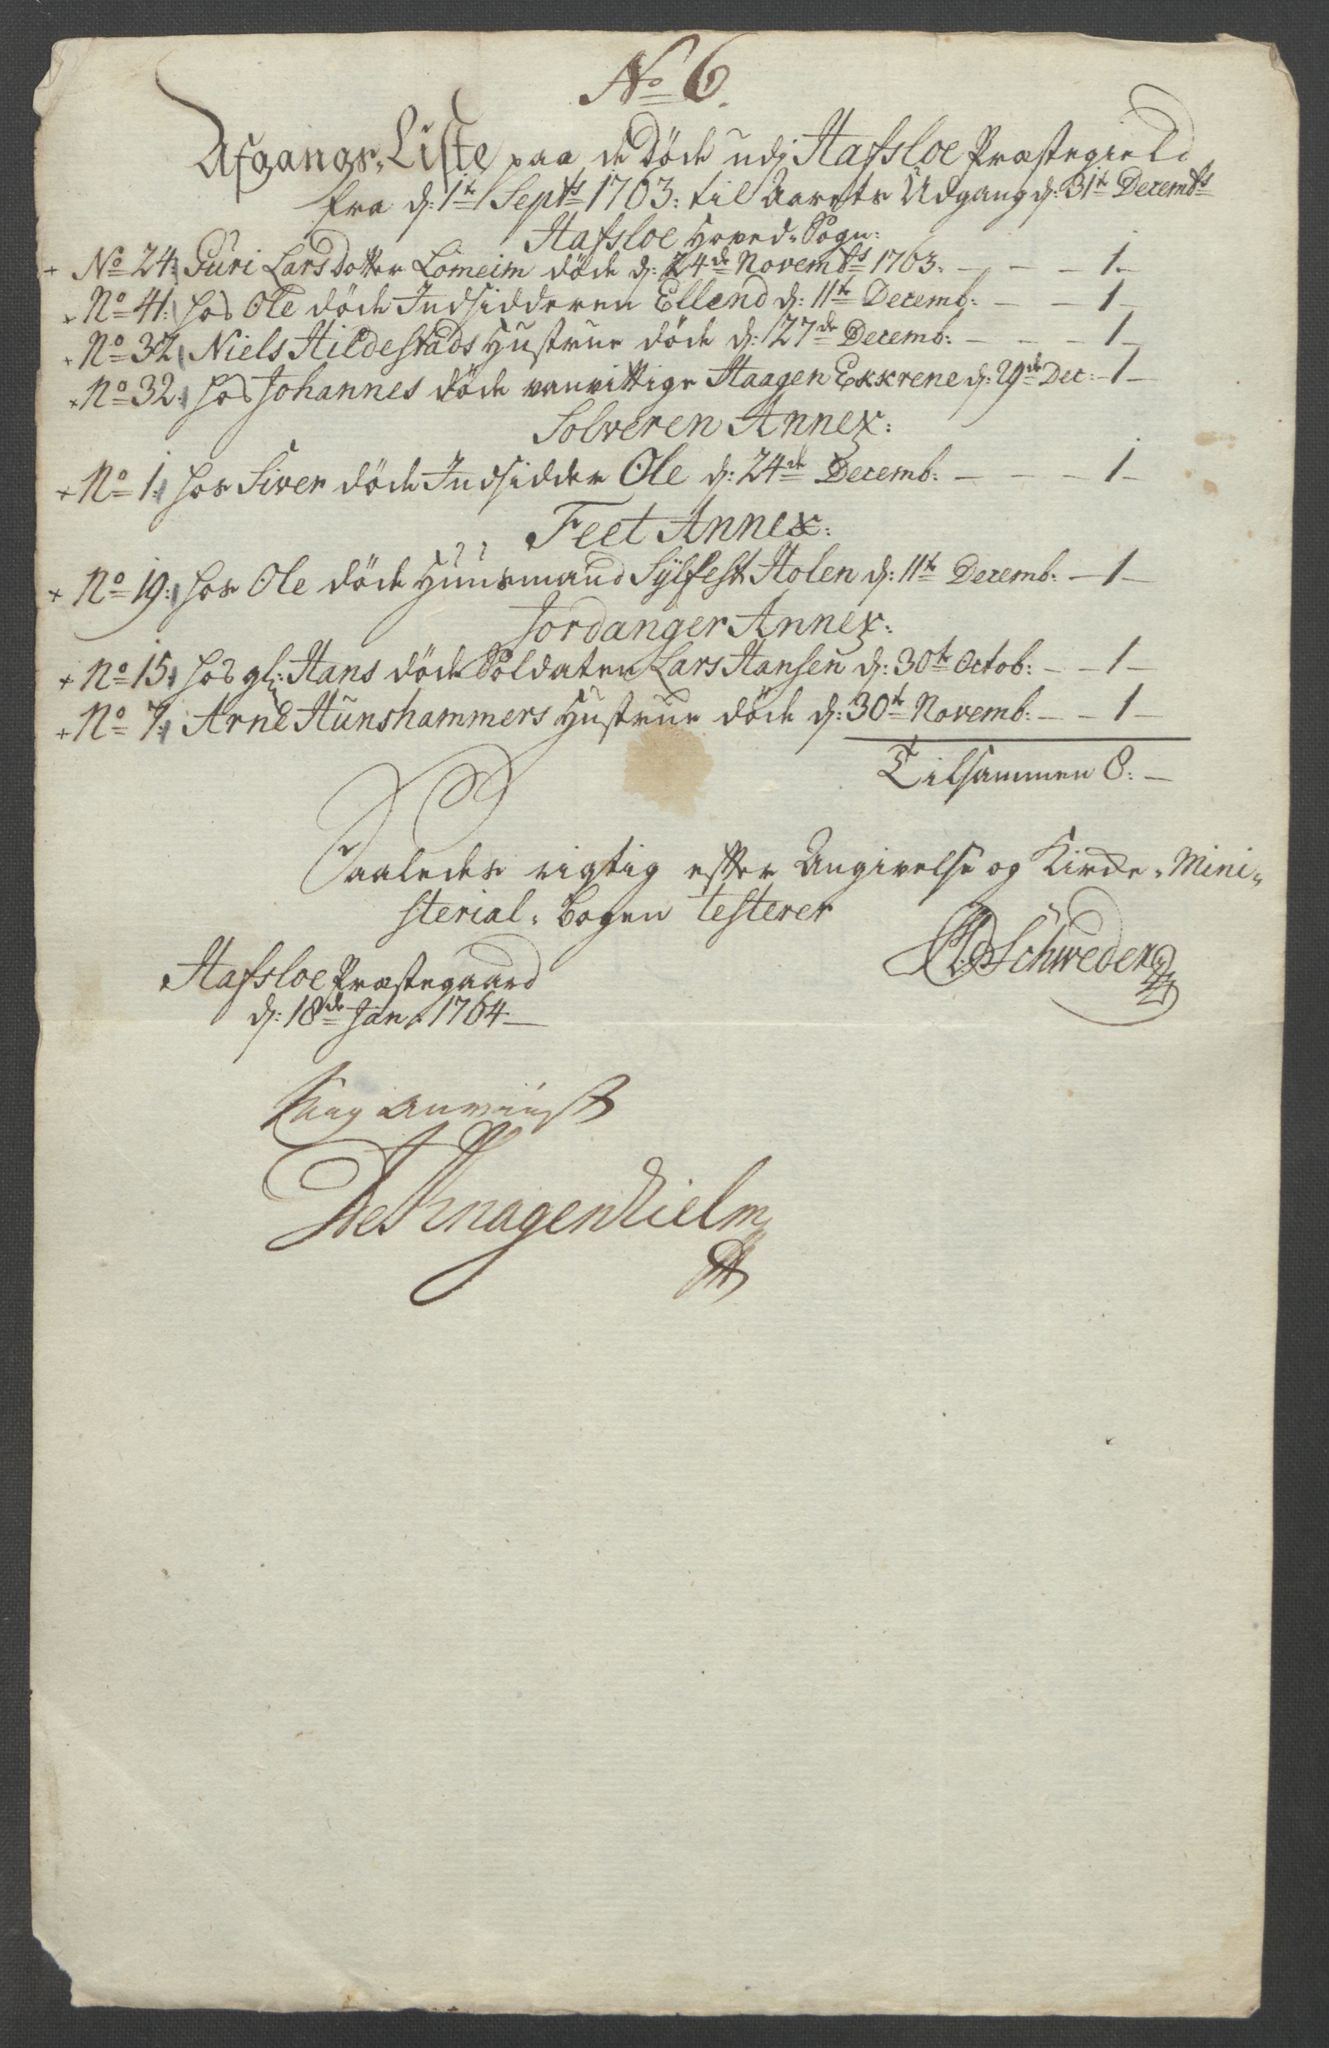 No 6.
Afgangs-Liste paa de Døde udj Hafsloe Præstegield
fra d: 1te Septbs 1763: til Aarets Udgang d: 31te Decembs
Hafsloe Hoved-Sogn:
+ No 24: Guri Larsdotter Lomeim døde d: 24de Novembs 1763. — — — 1.—
+ No 41: hos Ole døde Indsidderen Ellend d: 11te Decemb: — — — 1—
+ No 32 Niels Hildestads Hustrue døde d: 27de Decemb: — — — 1—
+ No 32: hos Johannes døde vanvittige Haagen Ekkrene d: 29de Dec: — 1—
Solveren Annex:
+ No 1: hos Siver døde Indsidder Ole d: 24de Decemb: — — — 1—
Feet Annex:
+ No 19: hos Ole døde Huusmand Sylfest Holen d: 11te Decemb: — 1—
Jordanger Annex:
+ No 15: hos gl: Hans døde Soldaten Lars Hansen d: 30te Octob: — — 1—
+ No 7: Arne Hunshammers Hustrue døde d: 30te Novemb: — — 1—
Tilsammen 8: —
Saaledes rigtig efter Angivelse og Kirke-Mini-
sterial-Bogen testerer
Schweder
Hafsloe Præstegaard
d: 18de Jan: 1764 —
de Knagenhielm